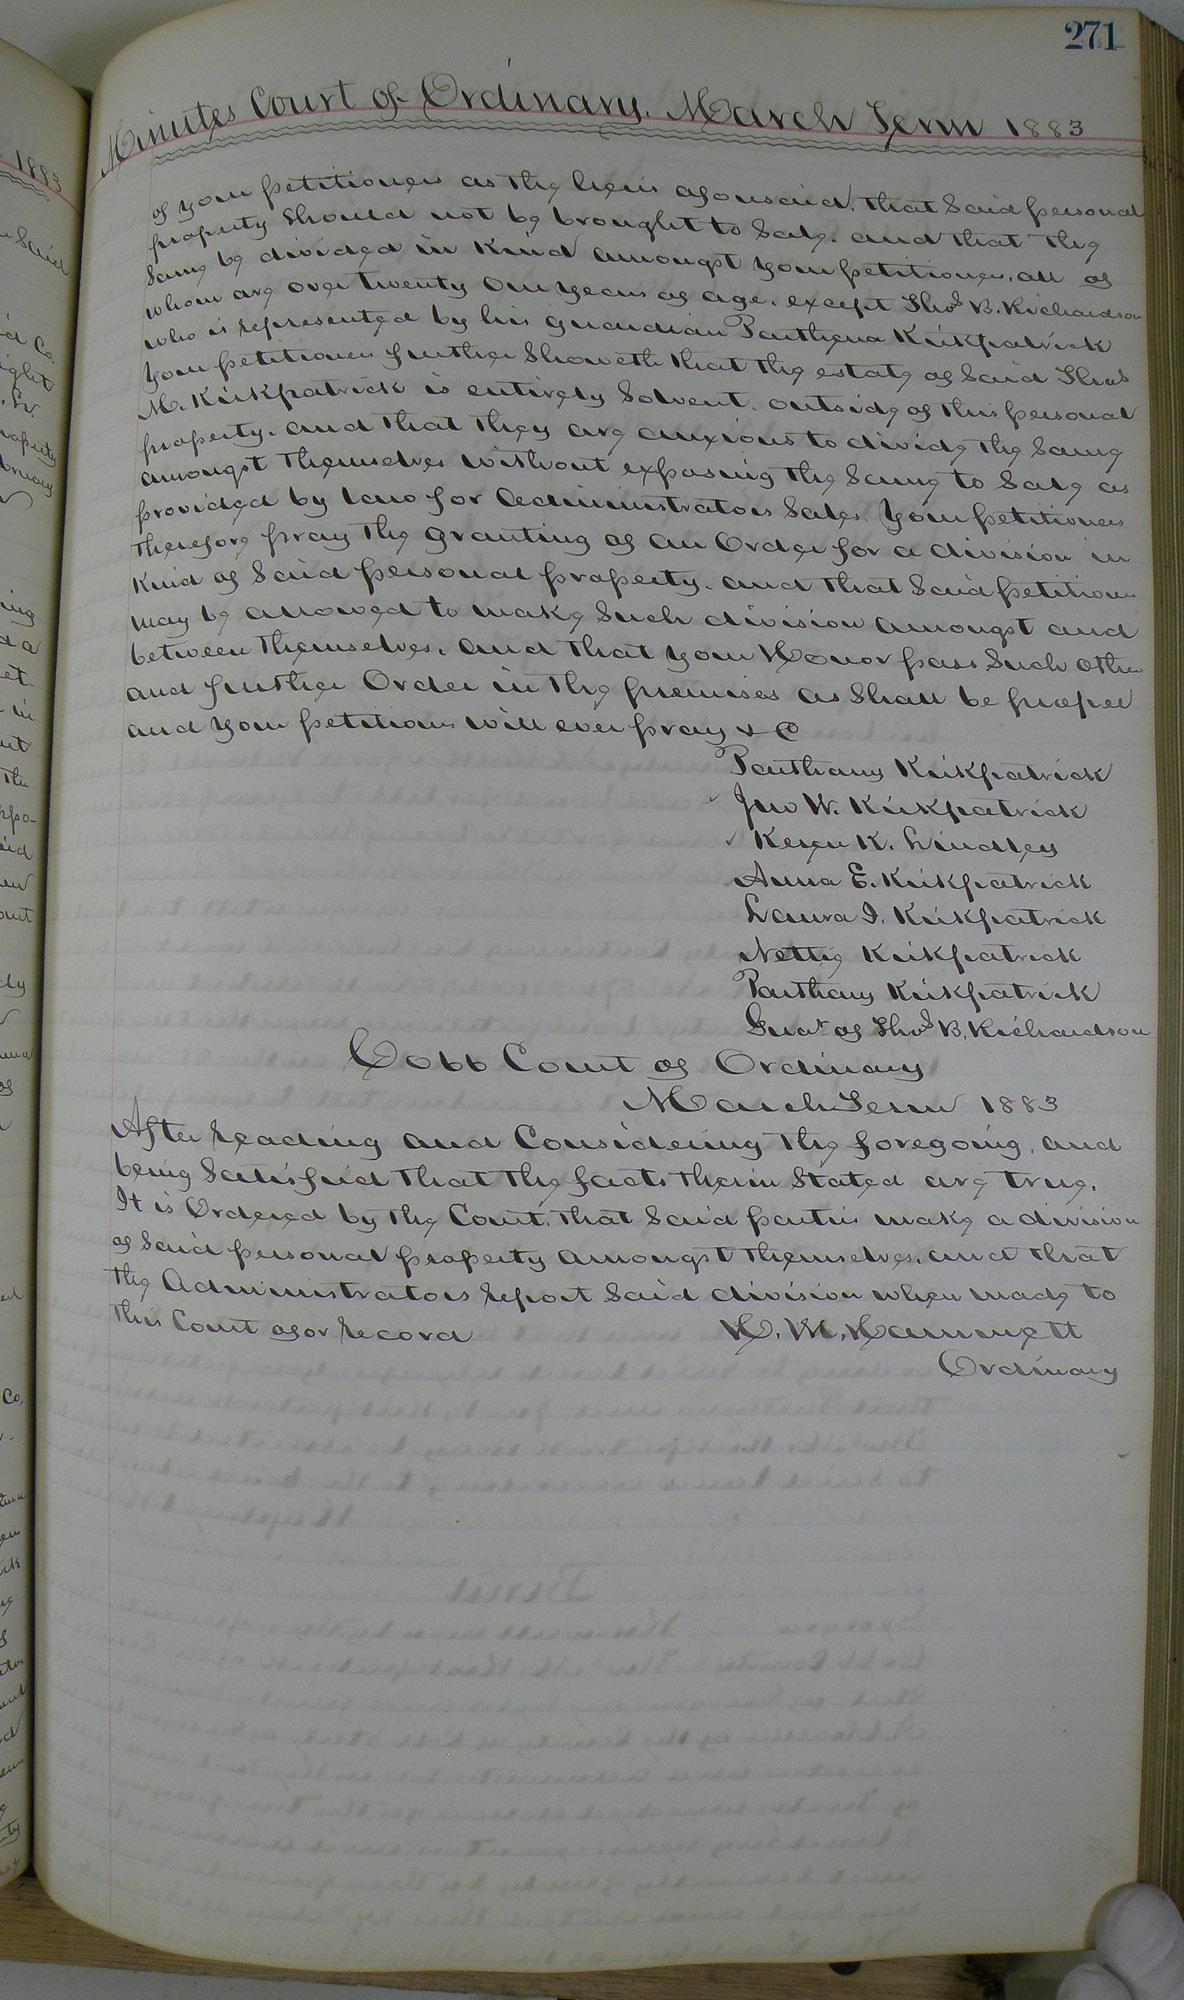 271
Minutes Court of Ordinary. March Term 1883
of your petitioners as the heirs aforesaid, that said personal
property should not be brought to sale. and that the
same be divided in kind amongst your petitioners, all of
whom are over twenty one years of age, except Thos B. Richardson
who is represented by his guardian Parthena Kirkpatrick
Your petitioners further Showeth that the estate of said Thos
M. Kirkpatrick is entirely Solvent. outside of this personal
property. and that they are anxious to divide the same
amongst themselves without exposing the same to Sale as
provided by law for Administrators Sales. Your petitioners
therefore pray the granting of an Order for a division in
Kind of said personal property. and that said petitioners
may be allowed to make such division amongst and
between themselves, and that your Honor pass such other
and further Order in the premises as shall be proper
and your petitioners will ever pray & C
Parthany Kirkpatrick
Jno W. Kirkpatrick
K. Lindley
Anna E. Kirkpatrick
Laura I. Kirkpatrick
Nettie Kirkpatrick
Parthany Kirkpatrick
Guar of Thos B. Richardson
Cobb Court of Ordinary
March Term 1883
After reading and Considering the foregoing, and
being Satisfied that the facts therein stated are true.
It is Ordered by the Court, that said parties make a division
of said personal property amongst themselves, and that
the Administrators report said division when made to
this Court as of record
H. M. Hammett
Ordinary